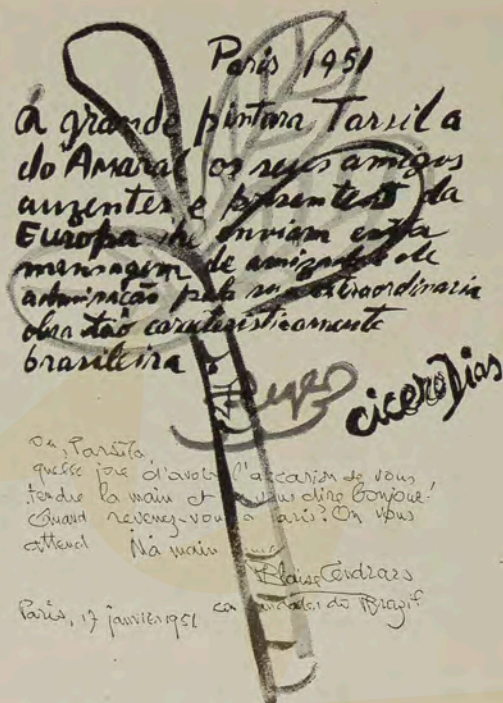 Paris 1951
A grande pintora Tarsila
do Amaral os seus amigos
auzentes e presentes da
Europa lhe enviam esta
mensagem de amizade de
admiração pela sua extraordinaria
obra tão caracteristicamente
brasileira.
cicero Dias
Tarsila
quelle joie d'avoir l'occasion de vous
tendre la main et vous dire bonjour!
Quand revenez-vous à Paris? On vous
attend Na main
Blaise Cendrars
do Brazil
Paris, 17 janvier 1951